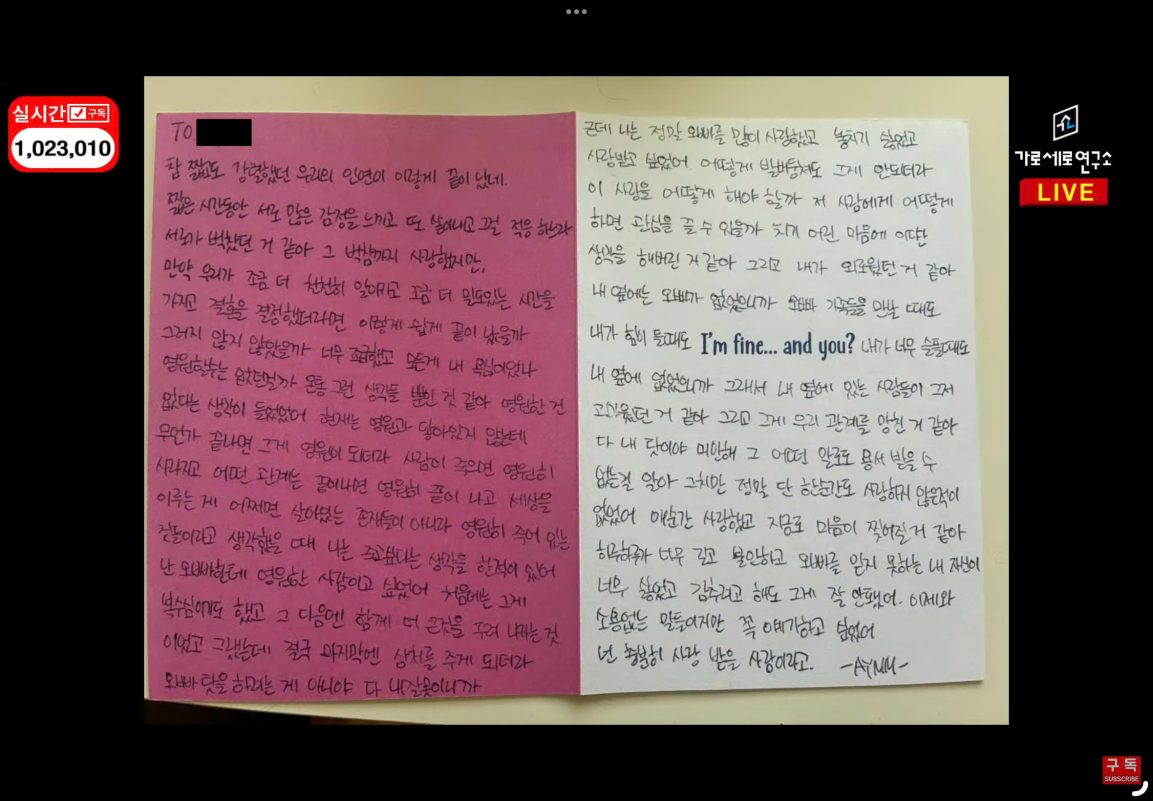 실시간 구독
1,023,010
가로세로연구소
LIVE
TO.
참 짧고도 강렬했던 우리의 인연이 이렇게 끝이 났네.
짧은 시간동안 서로 많은 감정을 느끼고 또 쏟아내고 그걸 적응 하느라
서로가 벅찼던 거 같아 그 벅참까지 사랑했지만,
만약 우리가 조금 더 천천히 알아가고 조금 더 밀도있는 시간을
가지고 결혼을 결정했더라면 이렇게 쉽게 끝이 났을까
그러지 않지 않았을까 너무 조급했고 모든게 내 욕심이었나
영원할수는 없었던걸까 온통 그런 생각들 뿐인 것 같아 영원한 건
없다는 생각이 들었었어 현재는 영원과 닿아있지 않는데
무언가 끝나면 그게 영원이 되더라 사람이 죽으면 영원히
사라지고 어떤 관계는 끝이나면 영원히 끝이 나고 세상을
이루는 게 어쩌면 살아있는 존재들이 아니라 영원히 죽어 있는
것들이라고 생각했을 때 나는 죽고싶다는 생각을 한적이 있어
난 오빠한테 영원한 사람이고 싶었어 처음에는 그게
복수심이기도 했고 그 다음엔 함께 더 큰것을 꾸려 나가는 것
이었고 그랬는데 결국 마지막엔 상처를 주게 되더라
오빠 탓을 하려는 게 아니야 다 내잘못이니까
근데 나는 정말 오빠를 많이 사랑했고 놓치기 싫었고
사랑받고 싶었어 어떻게 발버둥쳐도 그게 안되더라
이 사랑을 어떻게 해야 할까 저 사람에게 어떻게
하면 관심을 끌 수 있을까 치기 어린 마음에 이만
생각을 해버린 거 같아 그리고 내가 외로웠던 거 같아
내 옆에는 오빠가 없었으니까 오빠 가족들을 만날 때도
내가 힘이 들때도 I'm fine... and you? 내가 너무 슬플때도
내 옆에 없었으니까 그래서 내 옆에 있는 사람들이 그저
고마웠던 거 같아 그리고 그게 우리 관계를 망친 거 같아
다 내 탓이야 미안해 그 어떤 말로도 용서 받을 수
없는걸 알아 그치만 정말 단 한순간도 사랑하지 않은적이
없었어 매순간 사랑했고 지금도 마음이 찢어질 거 같아
하루하루가 너무 길고 불안하고 오빠를 믿지 못하는 내 자신이
너무 싫었고 감추려고 해도 그게 잘 안됐어. 이제와
소용없는 말들이지만 꼭 얘기하고 싶었어
넌 충분히 사랑 받을 사람이라고.
구독
SUBSCRIBE